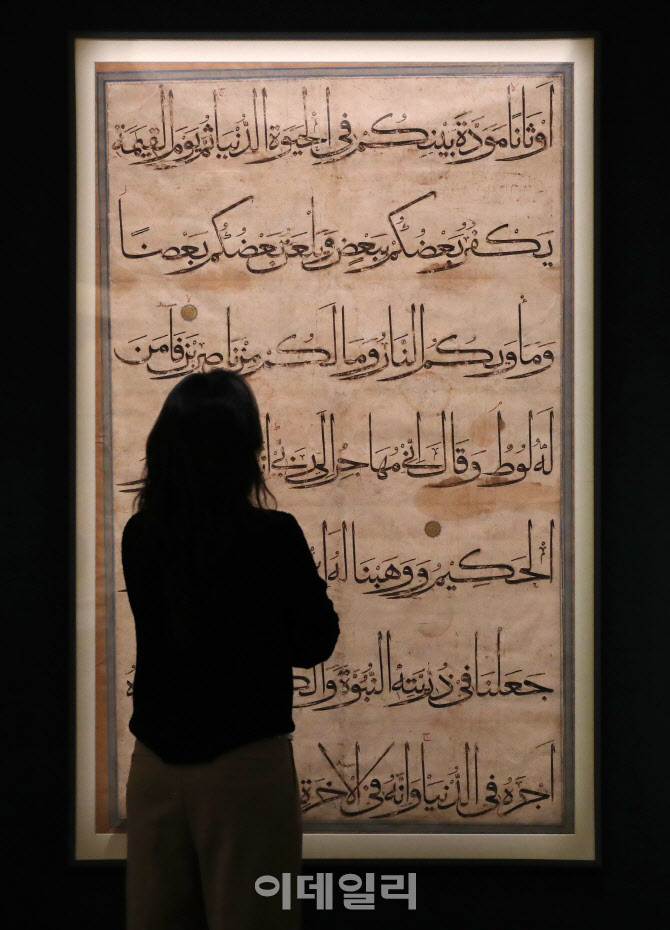 اَوْثَانًا مَوَدَّةَ بَيْنِكُمْ فِى الْحَيٰوةِ الدُّنْيَا ثُمَّ يَوْمَ الْقِيٰمَةِ
يَكْفُرُ بَعْضُكُمْ بِبَعْضٍ وَيَلْعَنُ بَعْضُكُمْ بَعْضًا
وَمَأْوٰيكُمُ النَّارُ وَمَا لَكُمْ مِنْ نَاصِرِينَ فَاٰمَنَ
لَهُ لُوطٌ وَقَالَ اِنِّى مُهَاجِرٌ اِلٰى رَبِّى
الْحَكِيمُ وَوَهَبْنَا لَهُ
جَعَلْنَا فِى ذُرِّيَّتِهِ النُّبُوَّةَ
اَجْرَهُ فِى الدُّنْيَا وَاِنَّهُ فِى الْاٰخِرَةِ
이데일리